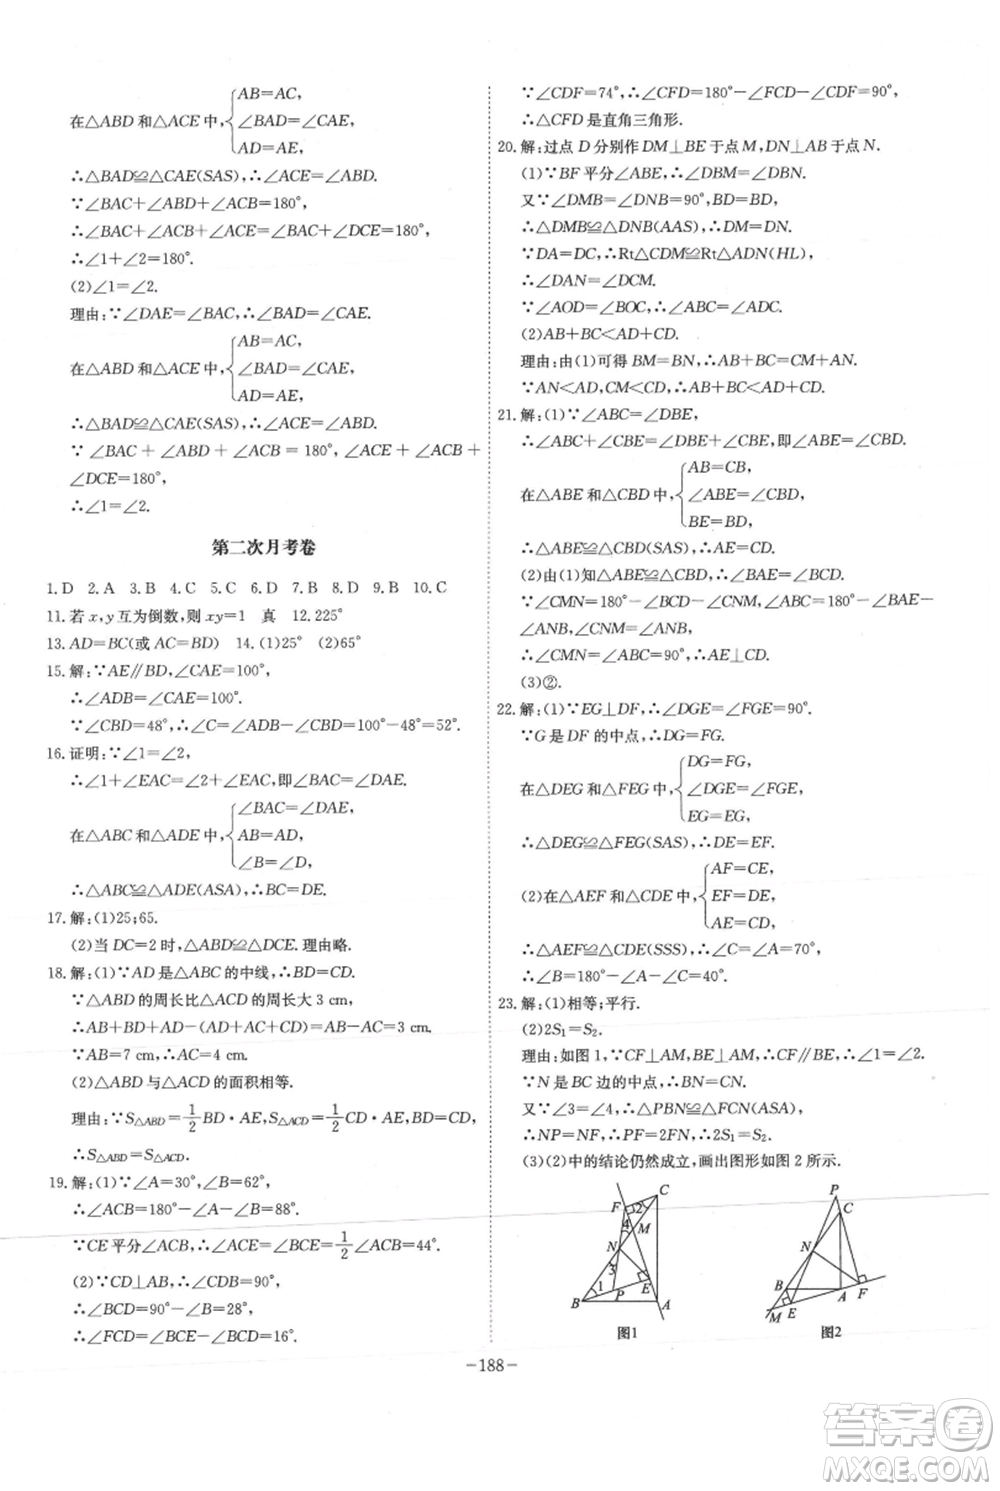 在△ABD 和△ACE 中,{AB=AC,
∠BAD=∠CAE,
AD=AE,
∴△BAD≌△CAE(SAS),∴∠ACE=∠ABD.
∵∠BAC+∠ABD+∠ACB=180°,
∴∠BAC+∠ACB+∠ACE=∠BAC+∠DCE=180°,
∴∠1+∠2=180°.
(2)∠1=∠2.
理由:∵∠DAE=∠BAC,∴∠BAD=∠CAE.
在△ABD 和△ACE 中,{AB=AC,
∠BAD=∠CAE,
AD=AE,
∴△BAD≌△CAE(SAS),∴∠ACE=∠ABD.
∵∠BAC+∠ABD+∠ACB=180°,∠ACE+∠ACB+
∠DCE=180°,
∴∠1=∠2.
第二次月考卷
1.D 2.A 3.B 4.C 5.C 6.D 7.B 8.D 9.B 10.C
11.若 x,y 互为倒数,则 xy=1 真 12.225°
13.AD=BC(或 AC=BD) 14.(1)25° (2)65°
15.解:∵AE∥BD,∠CAE=100°,
∴∠ADB=∠CAE=100°.
∵∠CBD=48°,∴∠C=∠ADB-∠CBD=100°-48°=52°.
16.证明:∵∠1=∠2,
∴∠1+∠EAC=∠2+∠EAC,即∠BAC=∠DAE.
在△ABC 和△ADE 中,{∠BAC=∠DAE,
AB=AD,
∠B=∠D,
∴△ABC≌△ADE(ASA),∴BC=DE.
17.解:(1)25;65.
(2)当 DC=2 时,△ABD≌△DCE.理由略.
18.解:(1)∵AD 是△ABC 的中线,∴BD=CD.
∵△ABD 的周长比△ACD 的周长大 3 cm,
∴AB+BD+AD-(AC+AD+CD)=AB-AC=3 cm.
∵AB=7 cm,∴AC=4 cm.
(2)△ABD 与△ACD 的面积相等.
理由:∵S△ABD=1/2BD·AE,S△ACD=1/2CD·AE,BD=CD,
∴S△ABD=S△ACD.
19.解:(1)∵∠A=30°,∠B=62°,
∴∠ACB=180°-∠A-∠B=88°.
∵CE 平分∠ACB,∴∠ACE=∠BCE=1/2∠ACB=44°.
(2)∵CD⊥AB,∴∠CDB=90°,
∴∠BCD=90°-∠B=28°,
∴∠FCD=∠BCE-∠BCD=16°.
∵∠CDF=74°,∴∠CFD=180°-∠FCD-∠CDF=90°,
∴△CFD 是直角三角形.
20.解:过点 D 分别作 DM⊥BE 于点 M,DN⊥AB 于点 N.
(1)∵BF 平分∠ABE,∴∠DBM=∠DBN.
又∵∠DMB=∠DNB=90°,BD=BD,
∴△DMB≌△DNB(AAS),∴DM=DN.
∵DA=DC,∴Rt△CDM≌Rt△ADN(HL),
∴∠DAN=∠DCM.
∵∠AOD=∠BOC,∴∠ABC=∠ADC.
(2)AB+BC<AD+CD.
理由:由(1)可得 BM=BN,∴AB+BC=CM+AN.
∵AN<AD,CM<CD,∴AB+BC<AD+CD.
21.解:(1)∵∠ABC=∠DBE,
∴∠ABC+∠CBE=∠DBE+∠CBE,即∠ABE=∠CBD.
在△ABE 和△CBD 中,{AB=CB,
∠ABE=∠CBD,
BE=BD,
∴△ABE≌△CBD(SAS),∴AE=CD.
(2)由(1)知△ABE≌△CBD,∴∠BAE=∠BCD.
∵∠CMN=180°-∠BCD-∠CNM,∠ABC=180°-∠BAE-
∠ANB,∠CNM=∠ANB,
∴∠CMN=∠ABC=90°,∴AE⊥CD.
(3)②.
22.解:(1)∵EG⊥DF,∴∠DGE=∠FGE=90°.
∵G 是 DF 的中点,∴DG=FG.
在△DEG 和△FEG 中,{DG=FG,
∠DGE=∠FGE,
EG=EG,
∴△DEG≌△FEG(SAS),∴DE=EF.
(2)在△AEF 和△CDE 中,{AF=CE,
EF=DE,
AE=CD,
∴△AEF≌△CDE(SSS),∴∠C=∠A=70°,
∴∠B=180°-∠A-∠C=40°.
23.解:(1)相等;平行.
(2)2S₁=S₂.
理由:如图 1,∵CF⊥AM,BE⊥AM,∴CF∥BE,∴∠1=∠2.
∵N 是 BC 边的中点,∴BN=CN.
又∵∠3=∠4,∴△PBN≌△FCN(ASA),
∴NP=NF,∴PF=2FN,∴2S₁=S₂.
(3)(2)中的结论仍然成立,画出图形如图 2 所示.
C F 2 4 M N 3 1 E B P A
P C N B A F M E
图1 图2
-188-
答案圈
MXQE.COM